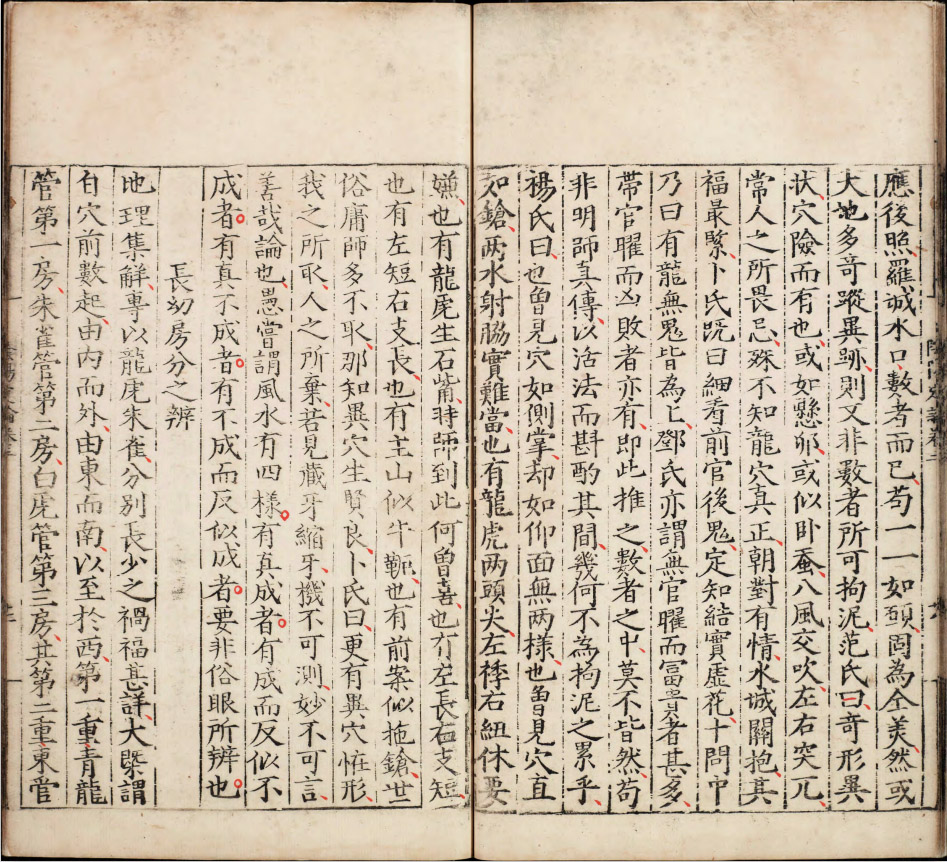 應後照羅城水口數者而已苟一一如頥固為全美然或
大地多奇蹤異跡則又非數者所可拘泥范氏曰奇形異
狀穴險而有也或如懸邜或似卧蚕八風交吹左右突兀
常人之所畏忌殊不知龍穴真正朝對有情水城關抱其
福最緊卜氏既曰細看前官後鬼定知結實虛花十問中
乃曰有龍無鬼皆為上鄧氏亦謂無官曜而冨貴者甚多
帶官曜而凶敗者亦有即此推之數者之中莫不皆然苟
非明師真傳以活法而斟酌其間幾何不為拘泥之累乎
楊氏曰也曽見穴如側掌却如仰面無两樣也曽見穴直
如鎗两水射脇實難當也有龍虎两頭尖左右紐休要
嫌也有龍虎生石觜時師到此何曽喜也有左長右支短
也有左短右支長也有主山似牛軛也有前案似拖鎗世
俗庸師多不取那知異穴生賢良卜氏曰更有異穴恠形
我之所取人之所棄若見藏牙縮牙機不可測妙不可言
善哉論也愚嘗謂風水有四樣有真成者有成而反似不
成者有真不成者有不成而反似成者要非俗眼所辨也
長幼房分之辨
地理集解專以龍虎朱雀分別長少之禍福甚詳大槩謂
自穴前數起由内而外由東而南以至於西第一重青龍
管第一房朱雀管第二房白虎管第三房其第二重東管